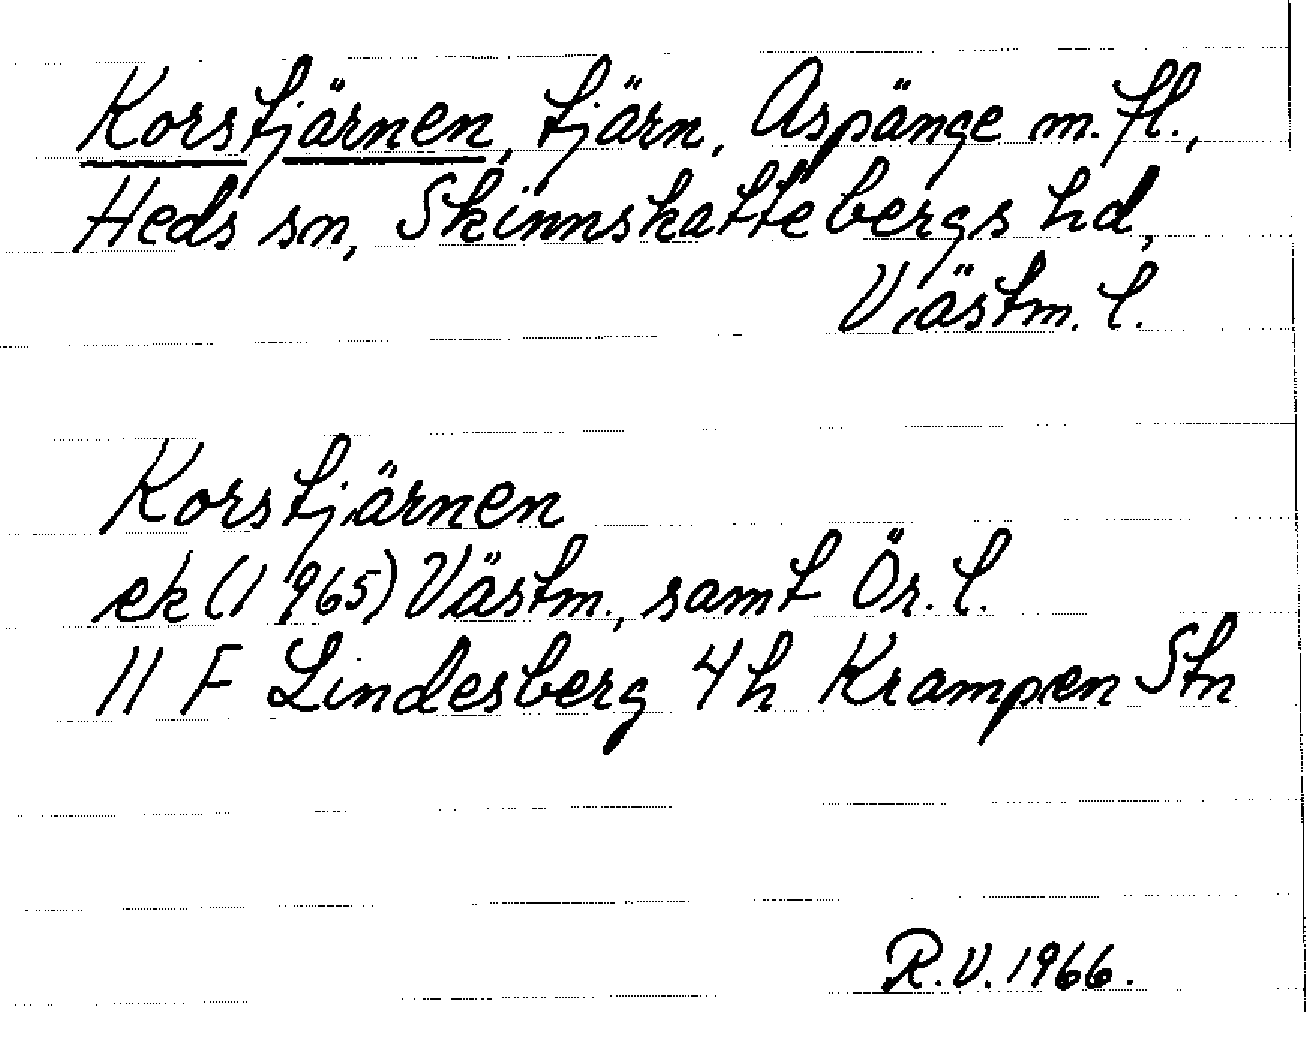 Korstjärnen, tjärn, Aspänge m. fl.,
Heds sn, Skinnskattebergs hd,
Västm. l.
Korstjärnen
ek (1965) Västm., samt Ör. l.
11 F Lindesberg 4h Krampen Stn
R.V. 1966.